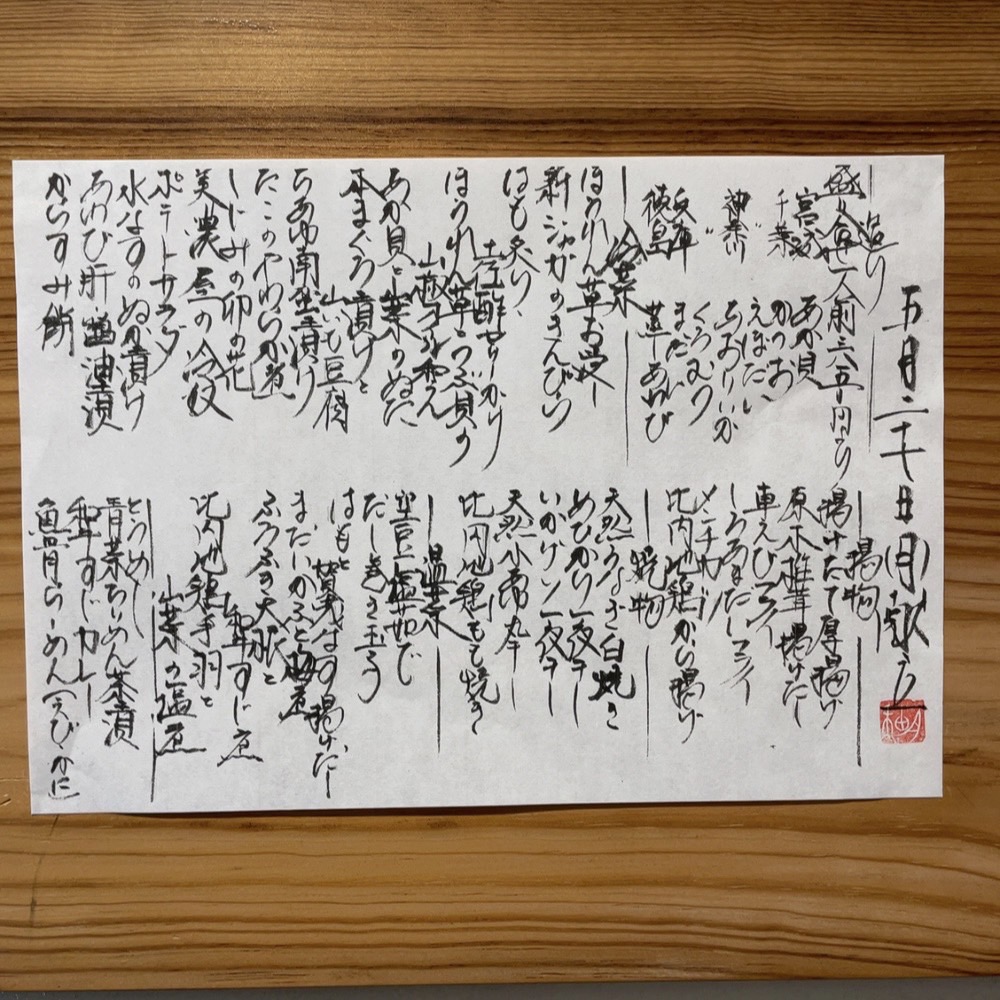 五月二十日(月)献立
造り
盛り合せ一人前一六五〇円より
宮城 あか貝
千葉 かつお
〃 えぼだい
神奈川 あおりいか
〃 くろむつ
兵庫 まだい
徳島 蒸しあわび
冷菜
ほうれん草お浸し
新じゃがのきんぴら
はも炙り、
土佐酢ぜりがけ
ほうれん草とつぶ貝の
山椒オイル和え
あか貝と葉のぬた
本まぐろ漬けと
山いも豆腐
ちあゆ南蛮漬け
たこのやわらか煮
しじみの卯の花
美濃屋の冷奴
ポテトサラダ
水なすのぬか漬け
あわび肝醤油漬
からすみ餅
揚物
揚げたて厚揚げ
原木椎茸揚げだし
車えびフライ
しろあまだしフライ
メンチカツ
比内地鶏から揚げ
焼物
天然うなぎ白焼き
めひかり一夜干し
いかゲソ一夜干し
天然小鯛丸干し
比内地鶏もも焼き
温菜
空豆塩茹で
だし巻き玉子
はもと賀茂なす揚げだし
まだいかぶと酒煮
ふろふき大根と
和牛すじ煮
比内地鶏手羽と
山菜の塩煮
とうめし
青菜ちりめん茶漬
和牛すじカレー
魚骨らーめん(えび・かに)